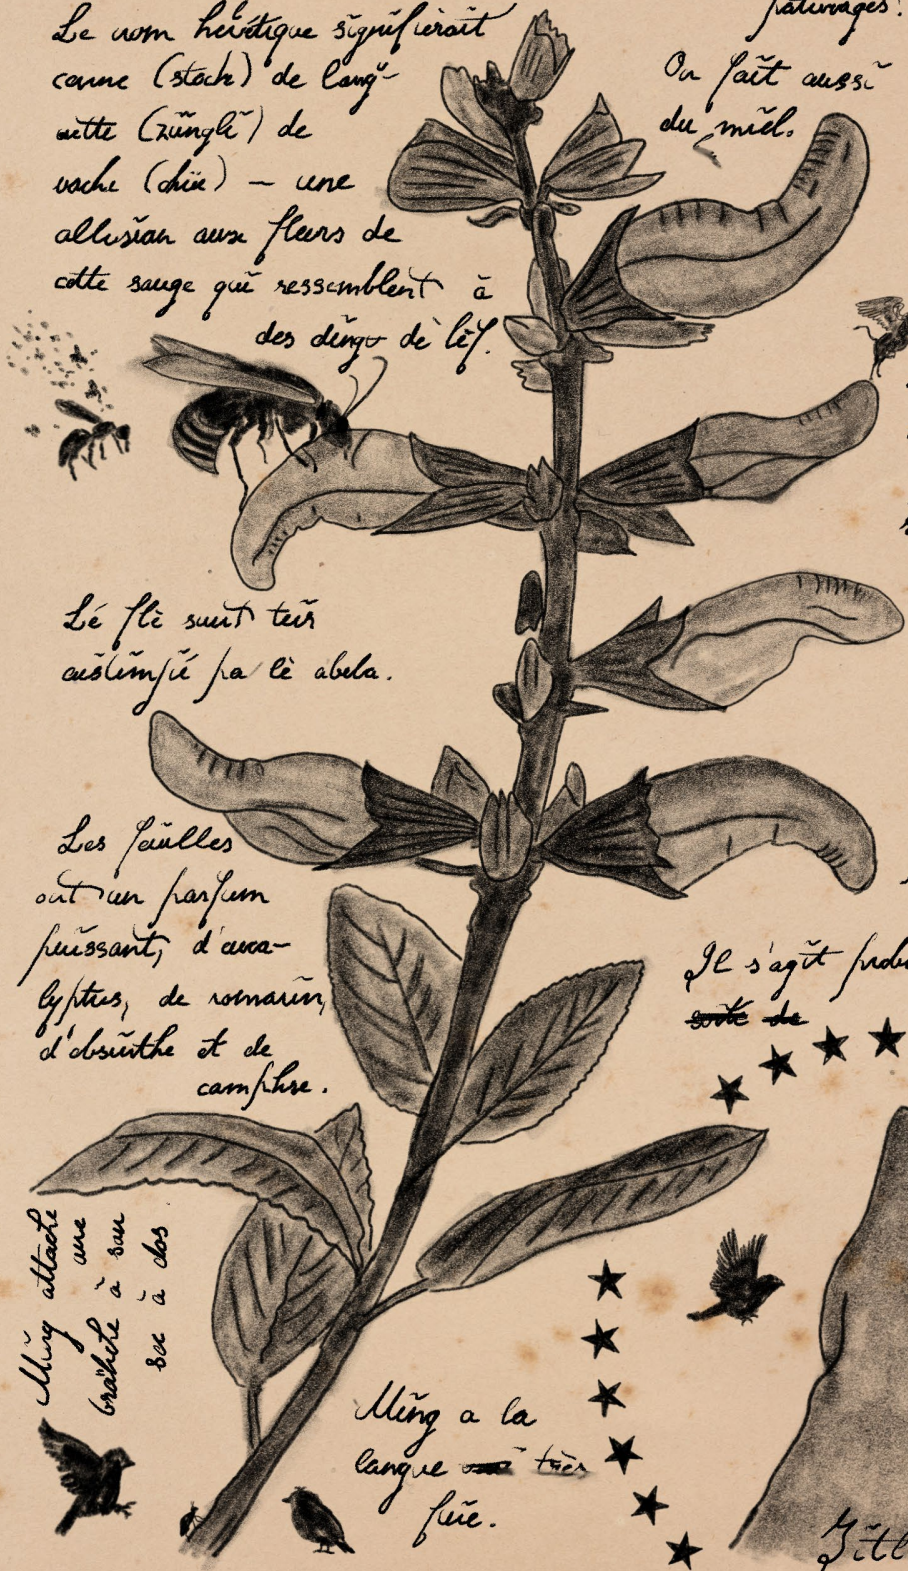 Le nom helvétique signifierait
canne (stock) de lang-
uette (züngli) de
vache (chüe) — une
allusion aux fleurs de
cette sauge qui ressemblent à
des dingo dè lèf.
pâturages.
On fait aussi
du miel.
Lé flè sunt tür
par lè abela.
Les feuilles
ont un parfum
puissant, d'euca-
lyptus, de romarin,
d'absinthe et de
camphre.
Il s'agit
Ming attache
une
branche à son
sac à dos
Ming a la
langue très
fine.